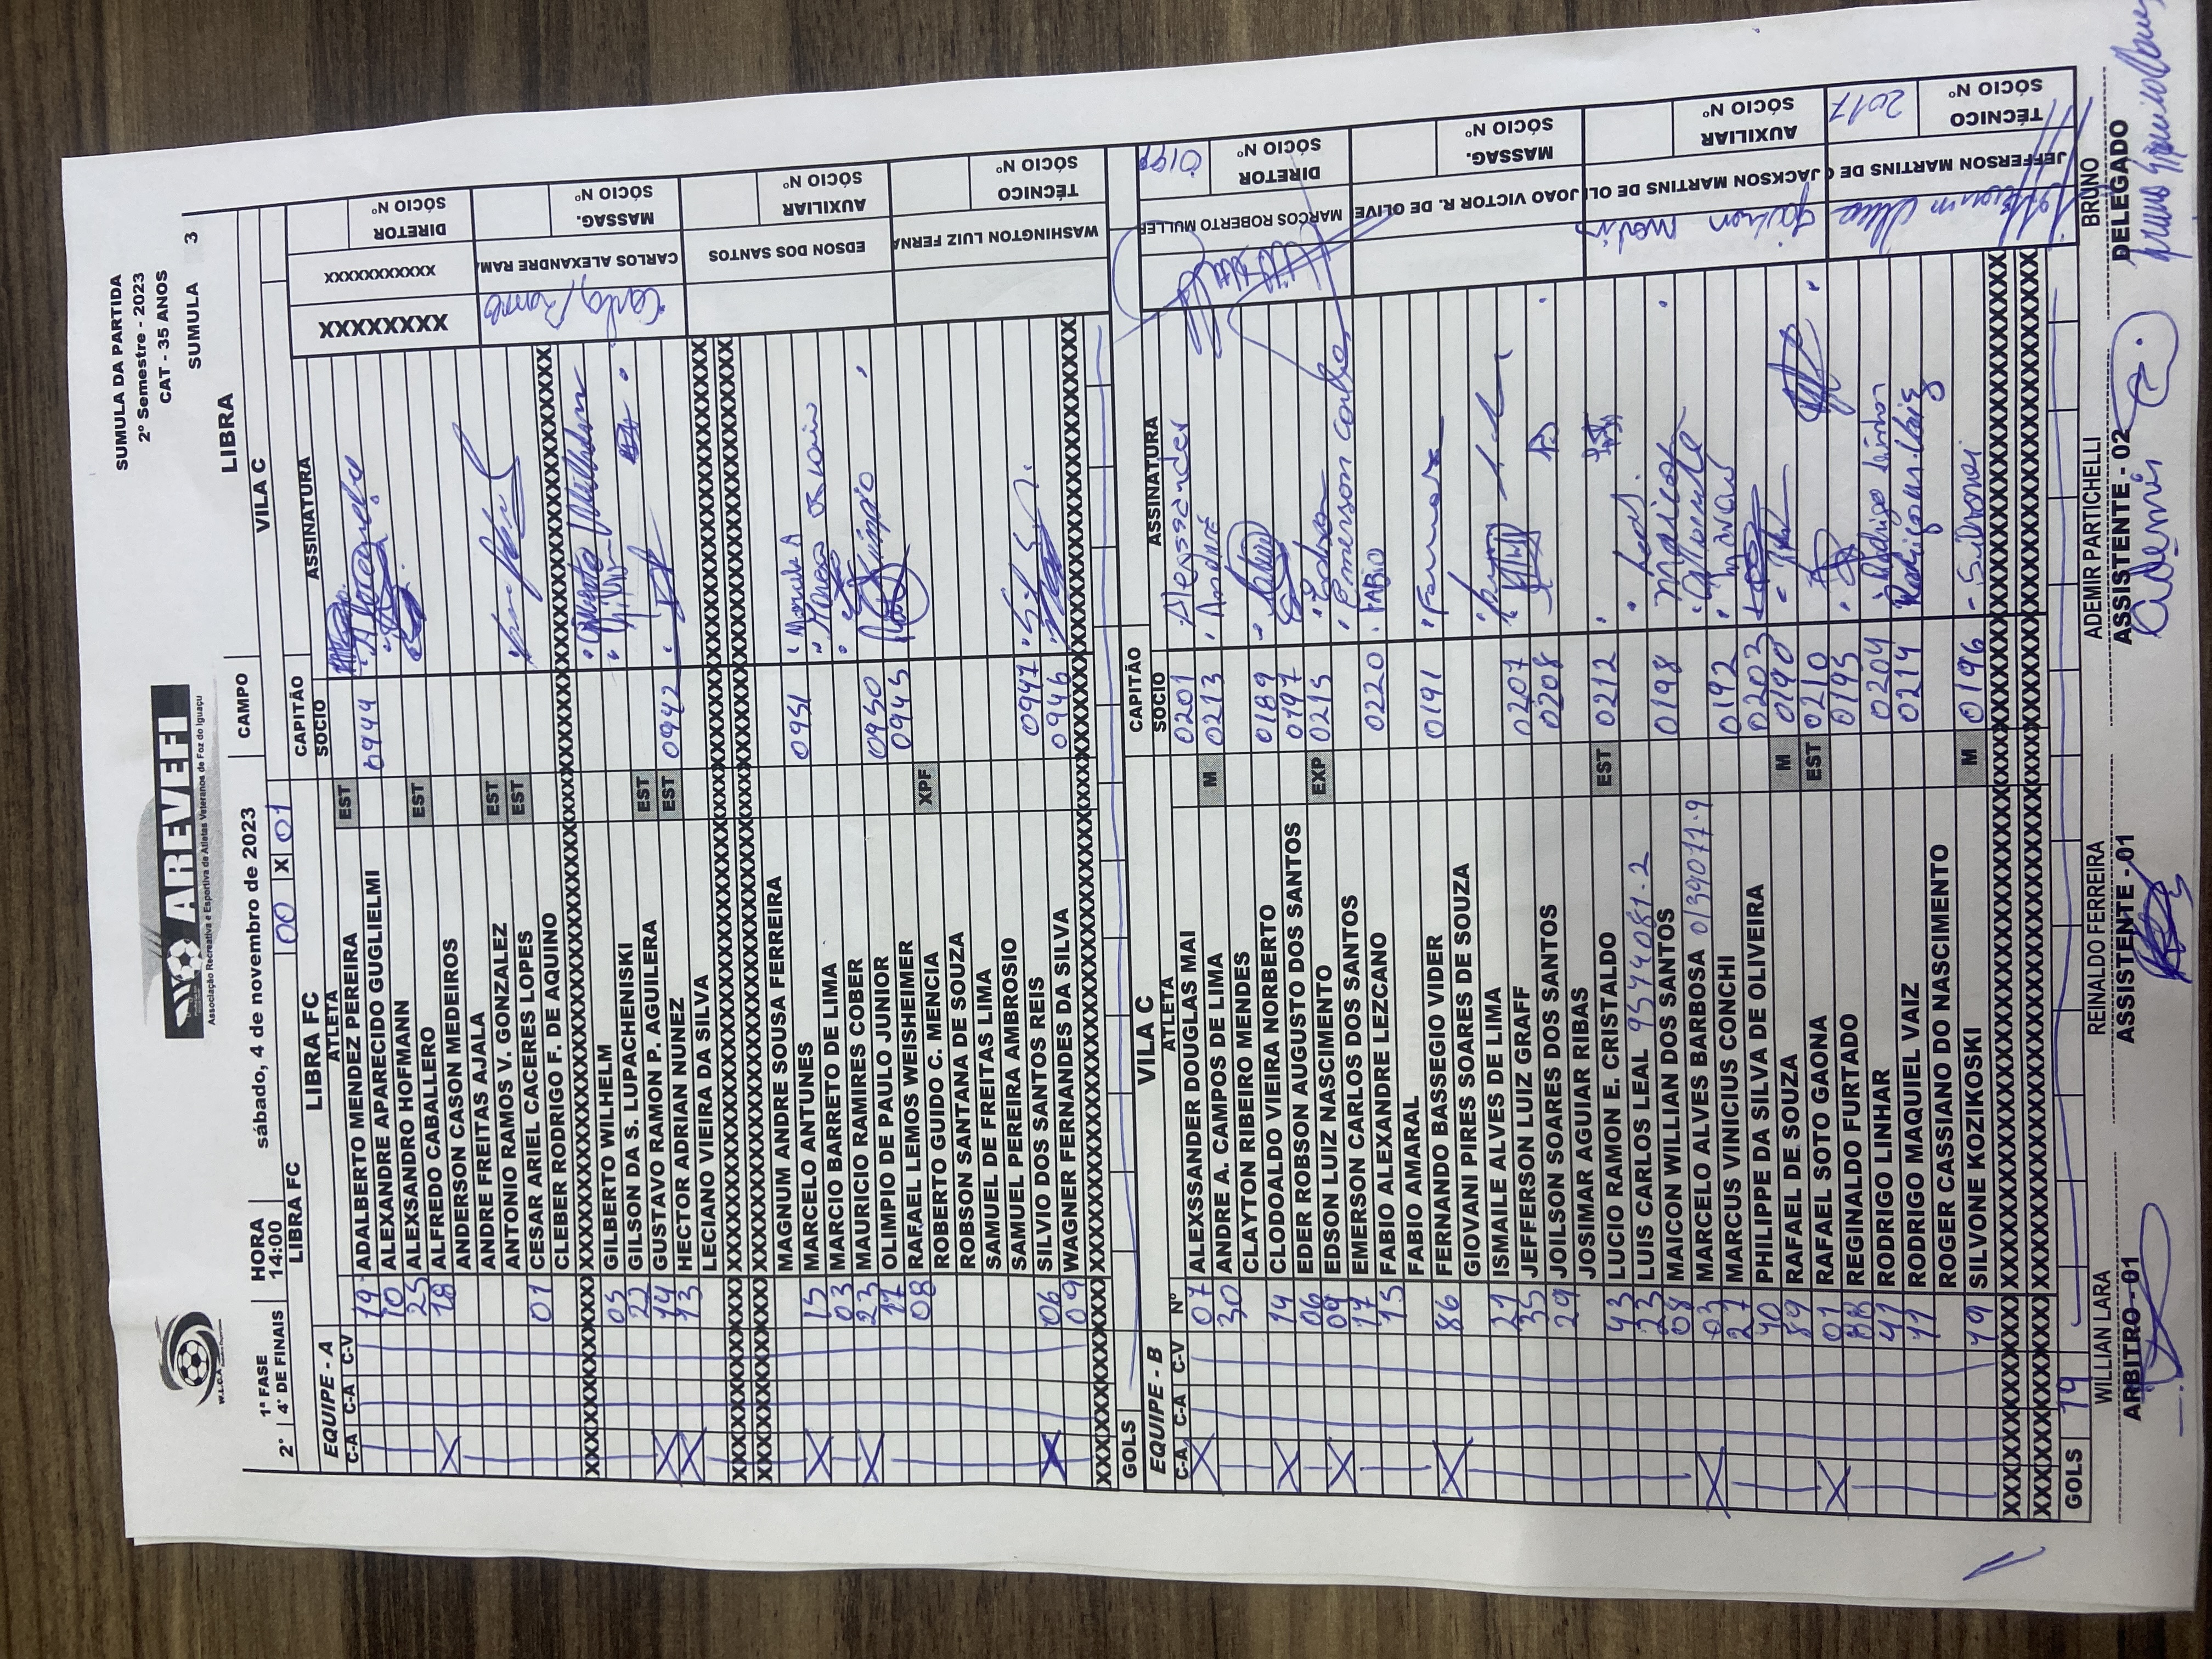 W.L.C.A
AREVEFI
Associação Recreativa e Esportiva de Atletas Veteranos de Foz do Iguaçu
SUMULA DA PARTIDA
2º Semestre - 2023
CAT - 35 ANOS
SUMULA 3
1ª FASE HORA sábado, 4 de novembro de 2023 CAMPO LIBRA
2ª 4ª DE FINAIS 14:00
LIBRA FC 00 X 01 VILA C
EQUIPE - A LIBRA FC CAPITÃO
C-A C-A C-V ATLETA SOCIO ASSINATURA
19 ADALBERTO MENDEZ PEREIRA EST
10 ALEXANDRE APARECIDO GUGLIELMI 0944
25 ALEXSANDRO HOFMANN
18 ALFREDO CABALLERO EST
X ANDERSON CASON MEDEIROS
ANDRE FREITAS AJALA
ANTONIO RAMOS V. GONZALEZ EST
01 CESAR ARIEL CACERES LOPES EST
CLEBER RODRIGO F. DE AQUINO
05 GILBERTO WILHELM
22 GILSON DA S. LUPACHENISKI
X 14 GUSTAVO RAMON P. AGUILERA EST
X 13 HECTOR ADRIAN NUNEZ EST 0942
LECIANO VIEIRA DA SILVA
MAGNUM ANDRE SOUSA FERREIRA
X 15 MARCELO ANTUNES 0951
03 MARCIO BARRETO DE LIMA
X 23 MAURICIO RAMIRES COBER
17 OLIMPIO DE PAULO JUNIOR 0950
08 RAFAEL LEMOS WEISHEIMER 0945
ROBERTO GUIDO C. MENCIA XPF
ROBSON SANTANA DE SOUZA
SAMUEL DE FREITAS LIMA
SAMUEL PEREIRA AMBROSIO
X 06 SILVIO DOS SANTOS REIS 0947
09 WAGNER FERNANDES DA SILVA 0946
GOLS
XXXXXXXX XXXXXXXXXXX DIRETOR SÓCIO Nº
CARLOS ALEXANDRE RAM MASSAG. SÓCIO Nº
EDSON DOS SANTOS AUXILIAR SÓCIO Nº
WASHINGTON LUIZ FERNA TÉCNICO SÓCIO Nº
EQUIPE - B VILA C CAPITÃO
C-A C-A C-V Nº ATLETA SOCIO ASSINATURA
X 07 ALEXSSANDER DOUGLAS MAI 0201 Alexssander
30 ANDRE A. CAMPOS DE LIMA M 0213 André
CLAYTON RIBEIRO MENDES
X 14 CLODOALDO VIEIRA NORBERTO 0189
06 EDER ROBSON AUGUSTO DOS SANTOS 0197
X 09 EDSON LUIZ NASCIMENTO EXP 0215 Edson
17 EMERSON CARLOS DOS SANTOS Emerson Carlos
15 FABIO ALEXANDRE LEZCANO 0220 FABIO
FABIO AMARAL
X 86 FERNANDO BASSEGIO VIDER 0191
GIOVANI PIRES SOARES DE SOUZA
21 ISMAILE ALVES DE LIMA
35 JEFFERSON LUIZ GRAFF 0207
29 JOILSON SOARES DOS SANTOS 0208
JOSIMAR AGUIAR RIBAS
43 LUCIO RAMON E. CRISTALDO EST 0212
23 LUIS CARLOS LEAL 9594081-2 Leal
08 MAICON WILLIAN DOS SANTOS 0198 Maicon
X 03 MARCELO ALVES BARBOSA 0139077-9
27 MARCUS VINICIUS CONCHI 0192
40 PHILIPPE DA SILVA DE OLIVEIRA 0203
89 RAFAEL DE SOUZA M 0190
X 01 RAFAEL SOTO GAONA EST 0210
88 REGINALDO FURTADO 0195
41 RODRIGO LINHAR 0204 Rodrigo Linhar
11 RODRIGO MAQUIEL VAIZ 0214
ROGER CASSIANO DO NASCIMENTO
19 SILVONE KOZIKOSKI M 0196 Silvonei
GOLS 19
MARCOS ROBERTO MULLER DIRETOR SÓCIO Nº 0199
JOAO VICTOR R. DE OLIVE MASSAG. SÓCIO Nº
JACKSON MARTINS DE OLI AUXILIAR SÓCIO Nº
JEFFERSON MARTINS DE TÉCNICO SÓCIO Nº 2017
WILLIAN LARA REINALDO FERREIRA ADEMIR PARTICHELLI BRUNO
ARBITRO -01 ASSISTENTE -01 ASSISTENTE - 02 DELEGADO
Ademir